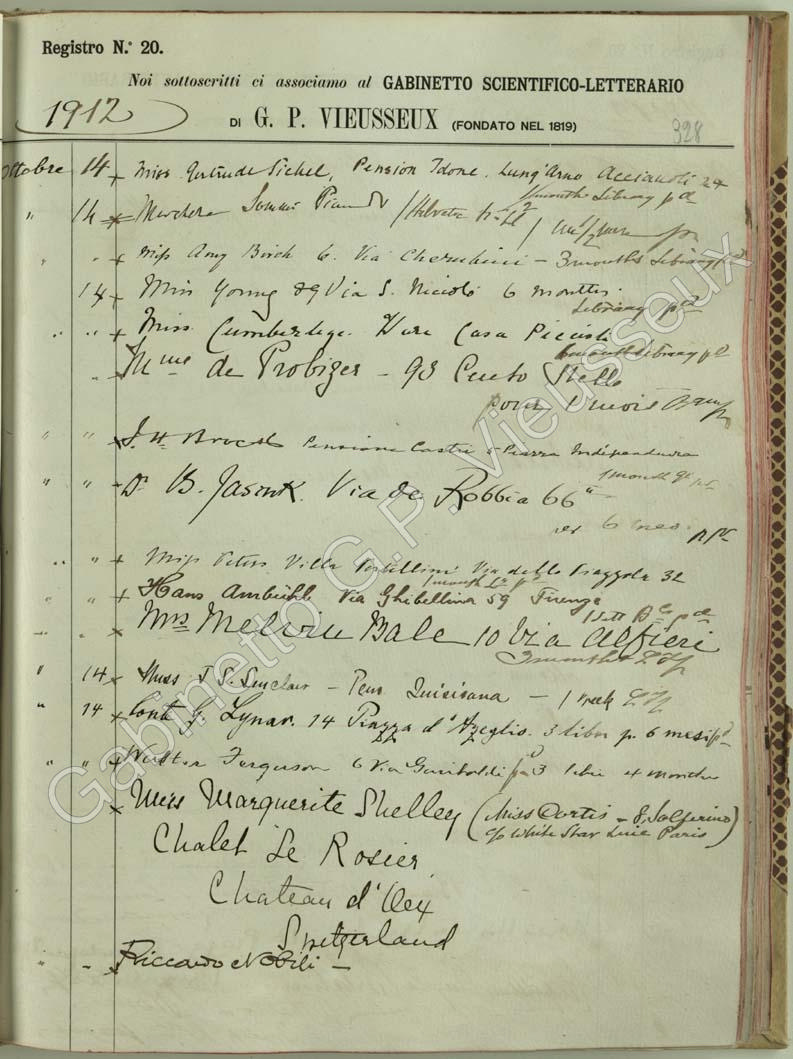 Registro N.° 20.
Noi sottoscritti ci associamo al GABINETTO SCIENTIFICO-LETTERARIO
1912
DI G. P. VIEUSSEUX (FONDATO NEL 1819)
328
Ottobre 14 Miss Gertrude Sichel, Pension Idone. Lung'Arno Acciaioli 24
1 month Library pd
" 14 Marchesa
" " Miss Amy Birch 6. Via Cherubini - 3 months Library pd
14 Miss Young 89 Via S. Niccolò 6 months
Library pd
" " Miss Cumberlege. Casa Piccioli
month Library pd
" Mme de Probizer - 93 Cento Stelle
pour 1 mois
" " J. H. Pensione Castri 5 Piazza Indipendenza
1 month
Dr B. Jasink. Via de Robbia 66
6 mesi
" " Miss Peters Villa Via delle Piazzola 32
1 month
" " Hans Ambühl Via Ghibellina 59 Firenze
Mrs Melvin Bale 10 Via Alfieri
3 months
" 14 Miss J S. Sinclair - Pens. Quisisana - 1 week
" 14 Conte G. Lynar. 14 Piazza d'Azeglio. 3 libri p. 6 mesi pd
" " Walter Ferguson 6 Via Garibaldi pd 3 libri 4 months
Miss Marguerite Shelley (Miss Curtis - 8, Solferino)
c/o White Star Line Paris)
Chalet Le Rosier
Chateau d'Oex
Switzerland
" " Riccardo Nobili -
Gabinetto G.P. Vieusseux